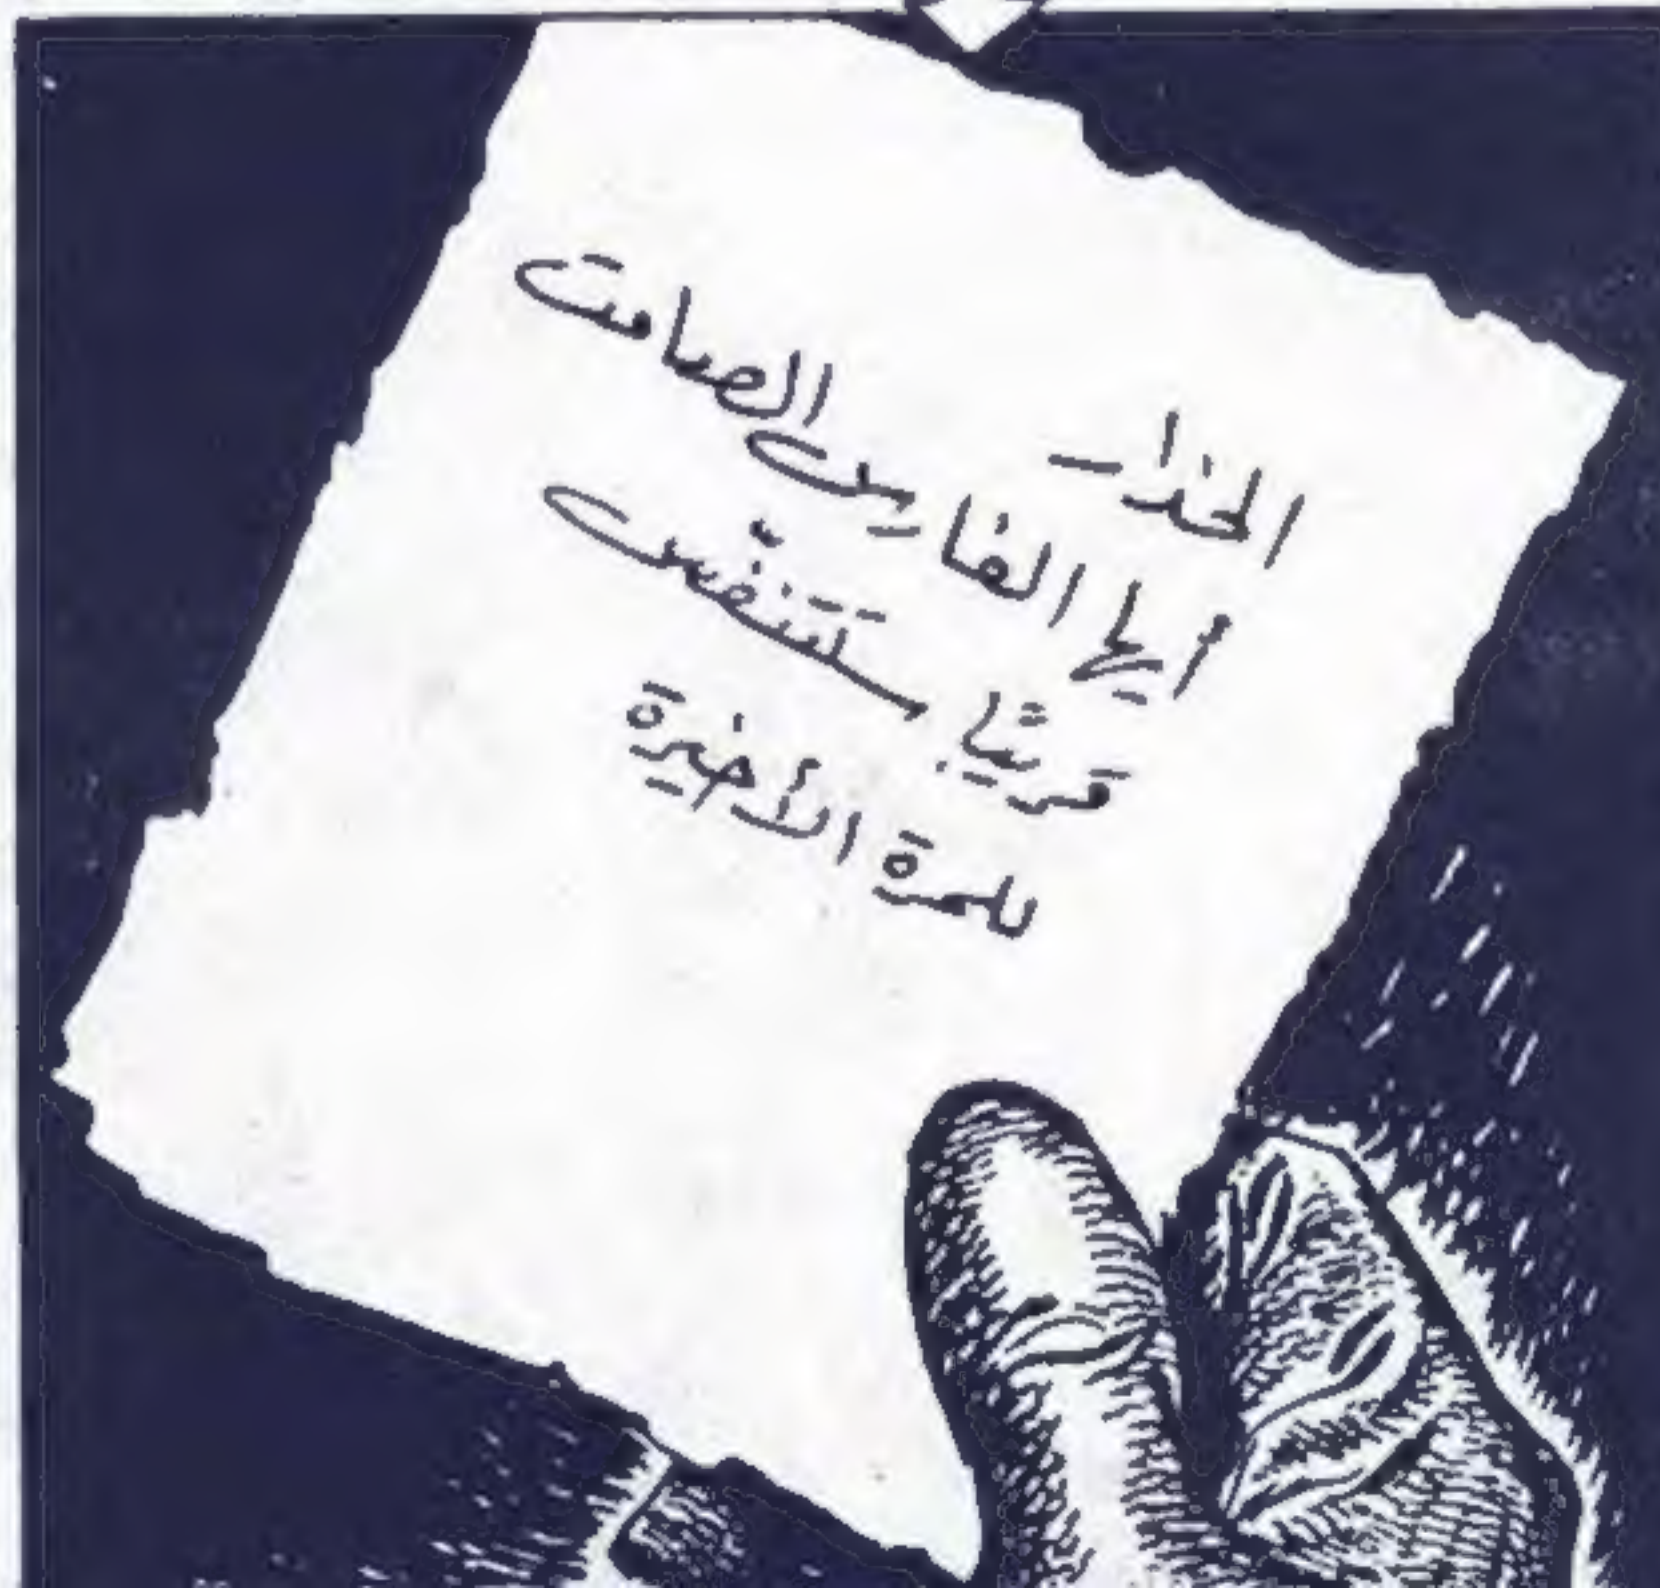 الحذا_
أيها الفارس الصامت
قريبًا ستَتنفّس
للمرة الأخيرة